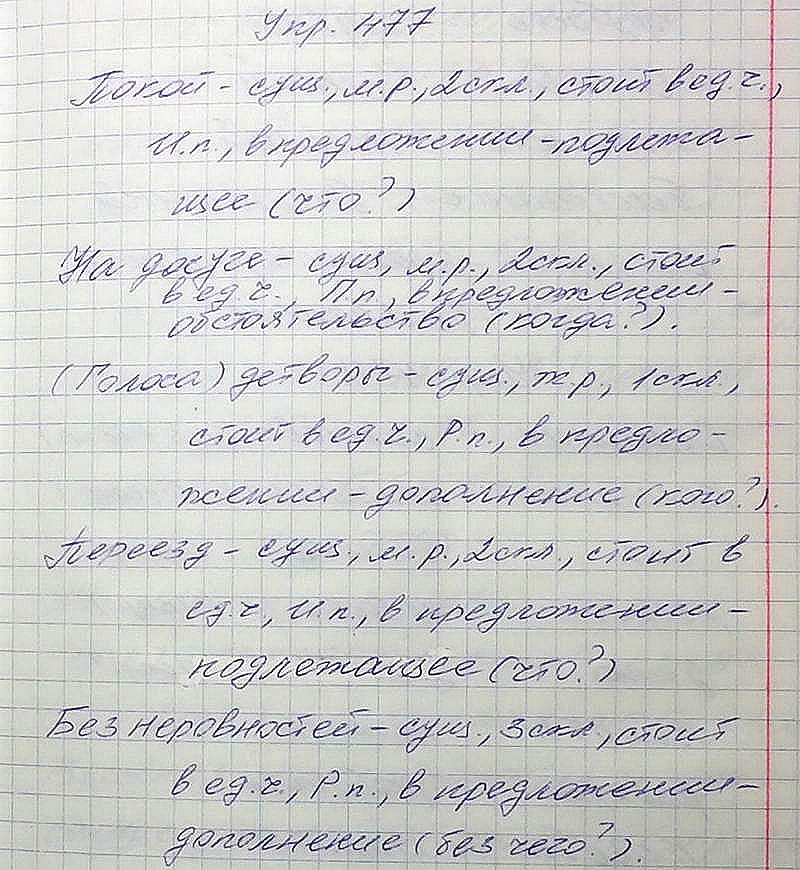 Укр. 477
Покой - сущ., м.р., 2скл., стоит в ед.ч.,
И.п., в предложении - подлежа-
щее (что?)
На досуге - сущ, м.р., 2скл., стоит
в ед.ч., П.п., в предложении -
обстоятельство (когда?).
(Голоса) детворы - сущ., ж.р., 1скл.,
стоит в ед.ч., Р.п., в предло-
жении - дополнение (кого?).
Переезд - сущ., м.р., 2скл., стоит в
ед.ч, И.п., в предложении -
подлежащее (что?)
Без неровностей - сущ., 3скл., стоит
в ед.ч., Р.п., в предложении -
дополнение (без чего?).